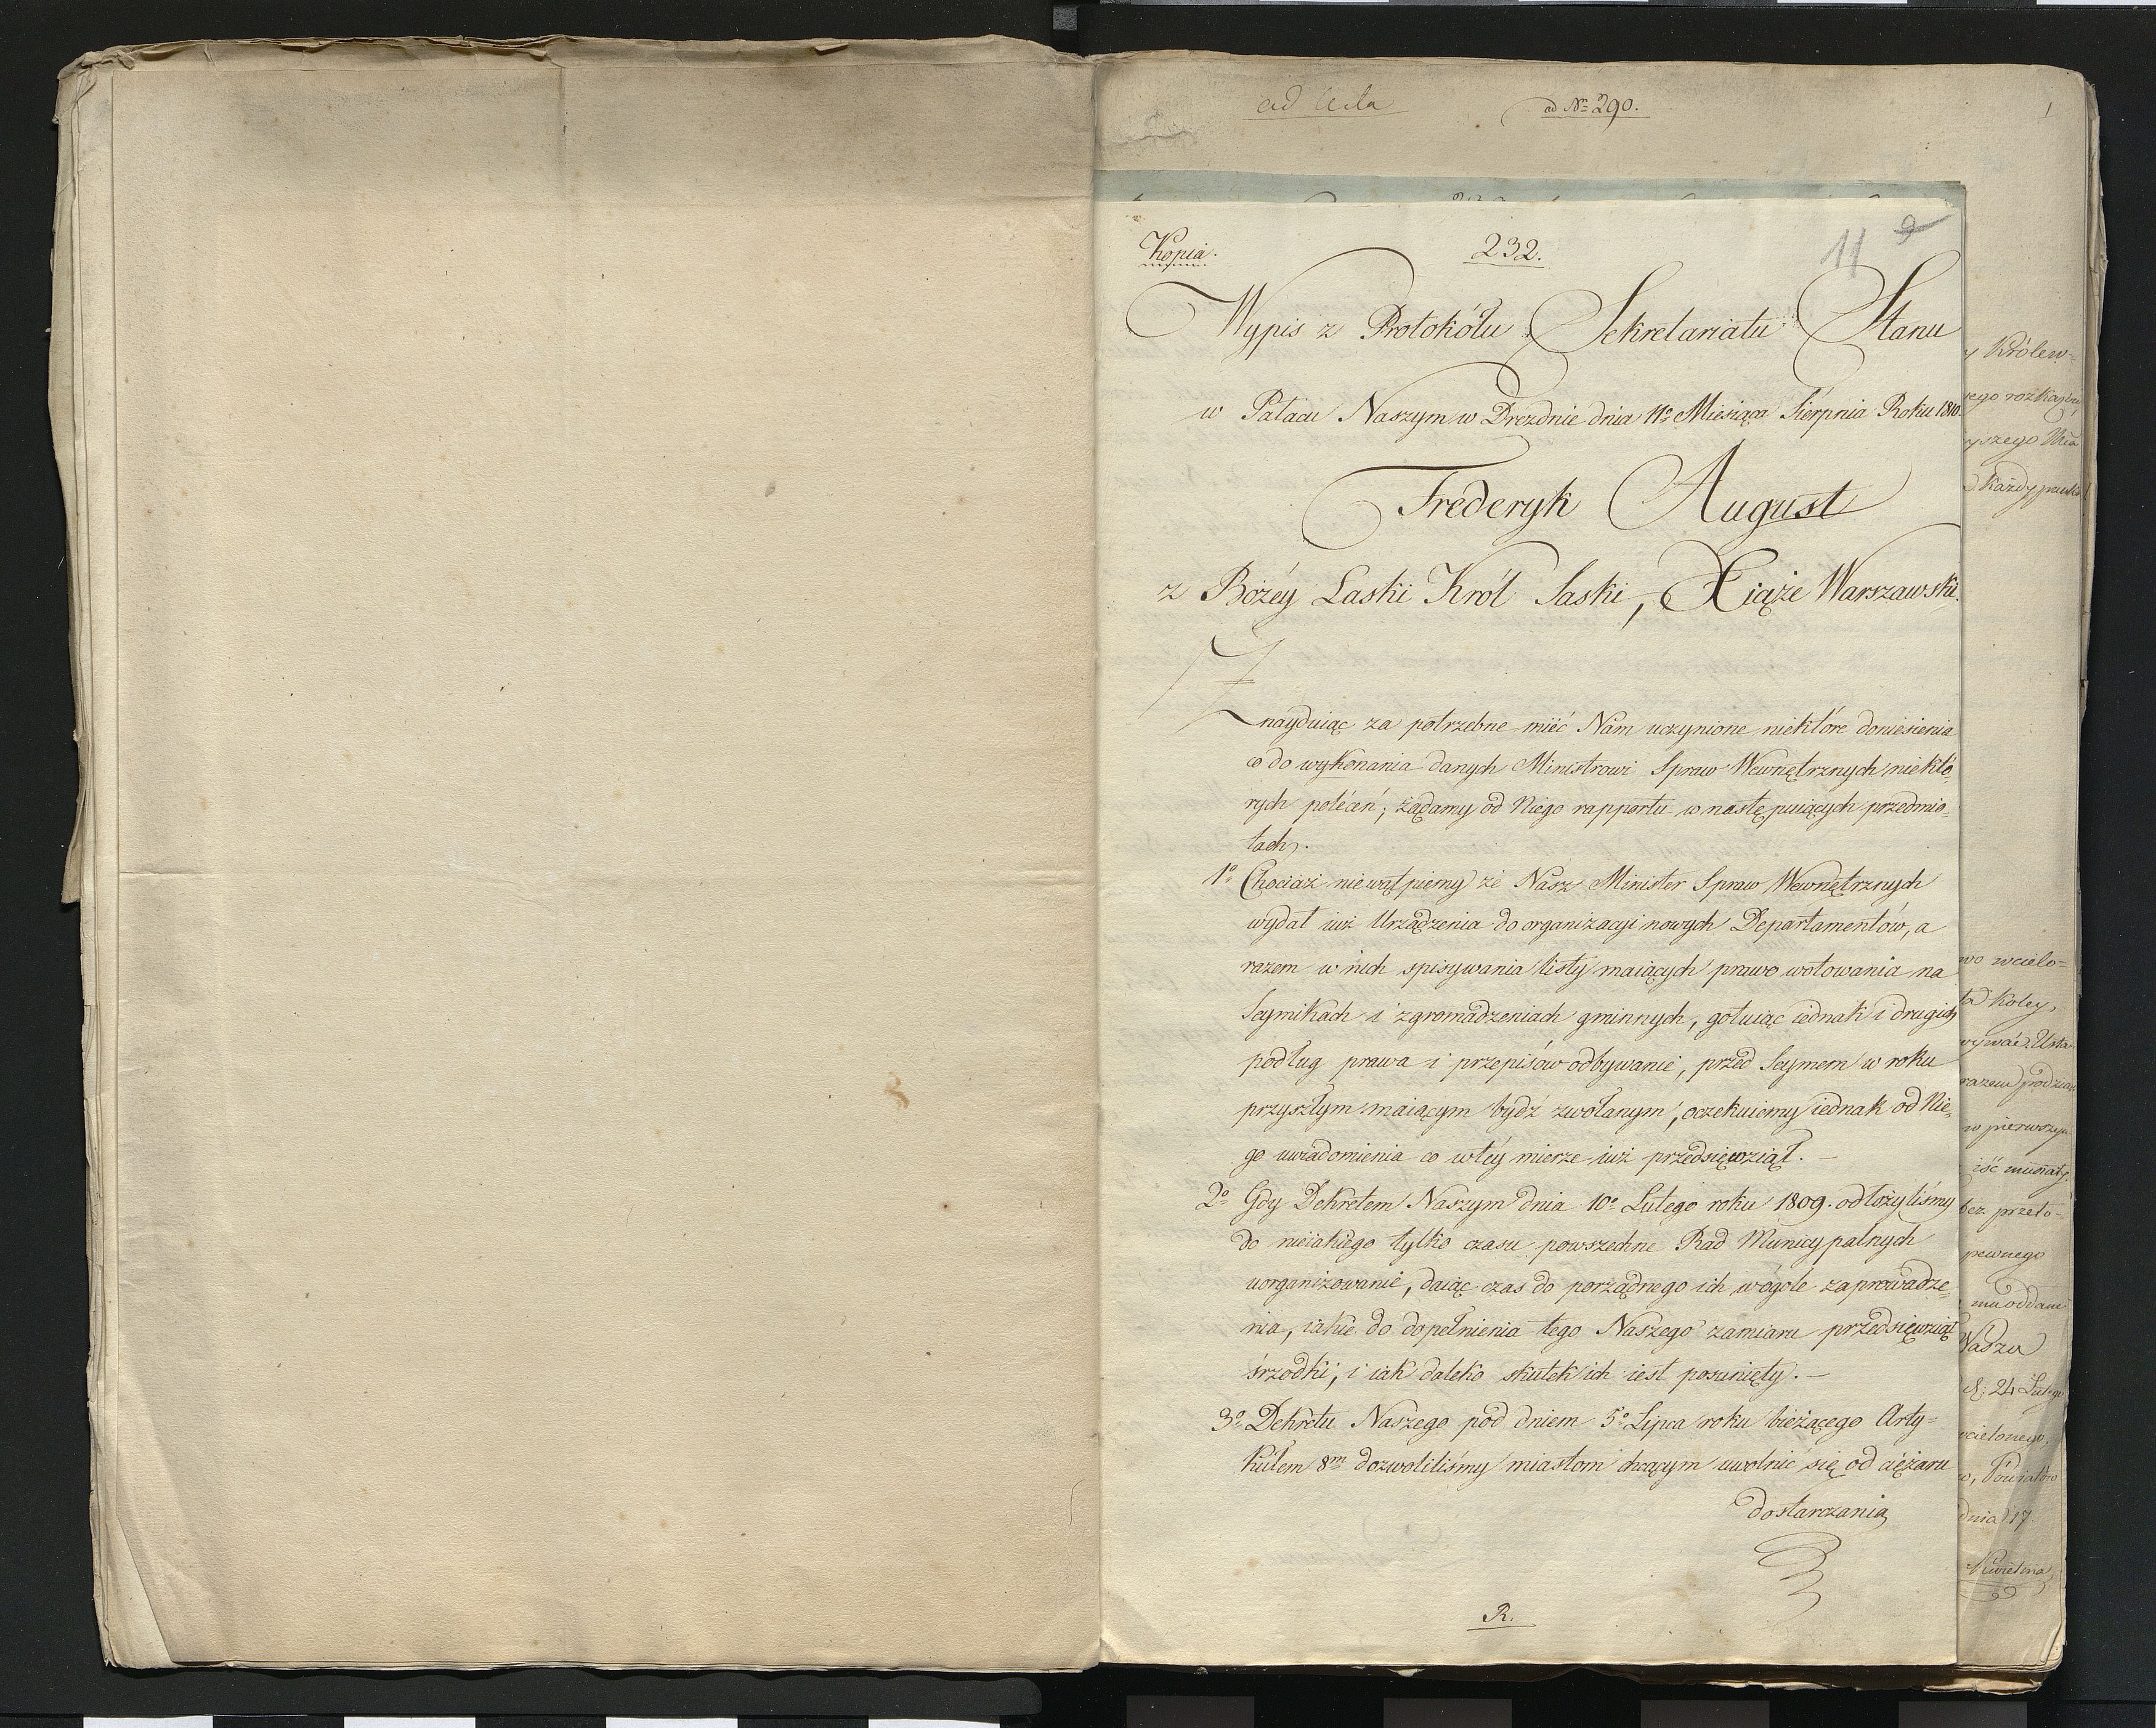 ad Acta
ad Nr 290.
1
Kopia.
232.
11
Wypis z Protokółu Sekretariatu Stanu
w Pałacu Naszym w Dreznie dnia 11o Miesiąca Sierpnia Roku 1810.
Frederyk August
z Bożéy Łaski Król Saski, Xiąże Warszawski.
Znayduiąc za potrzebne mieć Nam uczynione niektóre doniesienia
co do wykonania danych Ministrowi Spraw Wewnętrznych niektó-
rych poleceń; żądamy od Niego rapportu w następuiących przedmio-
tach.
1o Chociaż niewątpiemy że Nasz Minister Spraw Wewnętrznych
wydał iuż Urządzenia do organizacyi nowych Departamentów, a
razem w nich spisywania listy maiących prawo wotowania na
Seymikach i zgromadzeniach gminnych, gotuiąc iednak i drugich
podług prawa i przepisów odbywanie, przed Seymem w roku
przyszłym maiącym bydź zwołanym, oczekuiemy iednak od Nie-
go uwiadomienia co wtéy mierze iuż przedsięwziął. –
2o Gdy Dekretem Naszym dnia 10o Lutego roku 1809. odłożyliśmy
do nieiakiego tylko czasu powszechne Rad Municypalnych
uorganizowanie, daiąc czas do porządnego ich wogóle zaprowadze-
nia, iakie do dopełnienia tego Naszego zamiaru przedsięwziął
śrzodki, i iak daleko skutek ich iest posunięty. –
3o Dekretu Naszego pod dniem 5o Lipca roku bieżącego Arty-
kułem 8m dozwoliliśmy miastom chcącym uwolnić się od ciężaru
dostarczania
R.
y Królew-
iego rozkazu
każdy
wo wcielo-
koley,
razem
w pierwszym
iść musiały
bez przeło-
pewnego
mu oddane
24 Lutego
wcielonego,
Powiatów
dnia 17.
Kwietnia